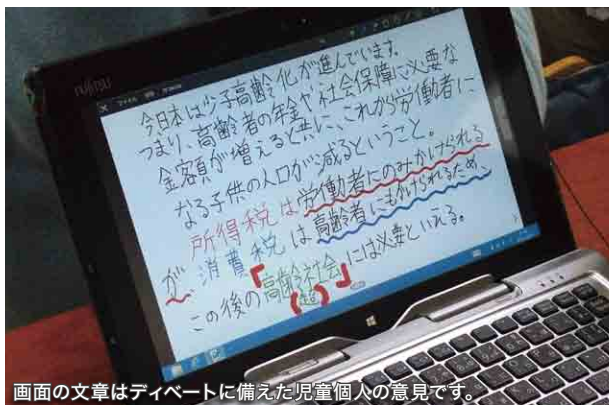 FUJITSU
ファイル
今日本は少子高齢化が進んでいます。
つまり、高齢者の年金や社会保障に必要な
金額が増えると共に、これから労働者に
なる子供の人口が減るということ。
所得税は労働者にのみかけられる
が、消費税は高齢者にもかけられるため、
この後の「高齢社会」には必要といえる。
(超)
画面の文章はディベートに備えた児童個人の意見です。